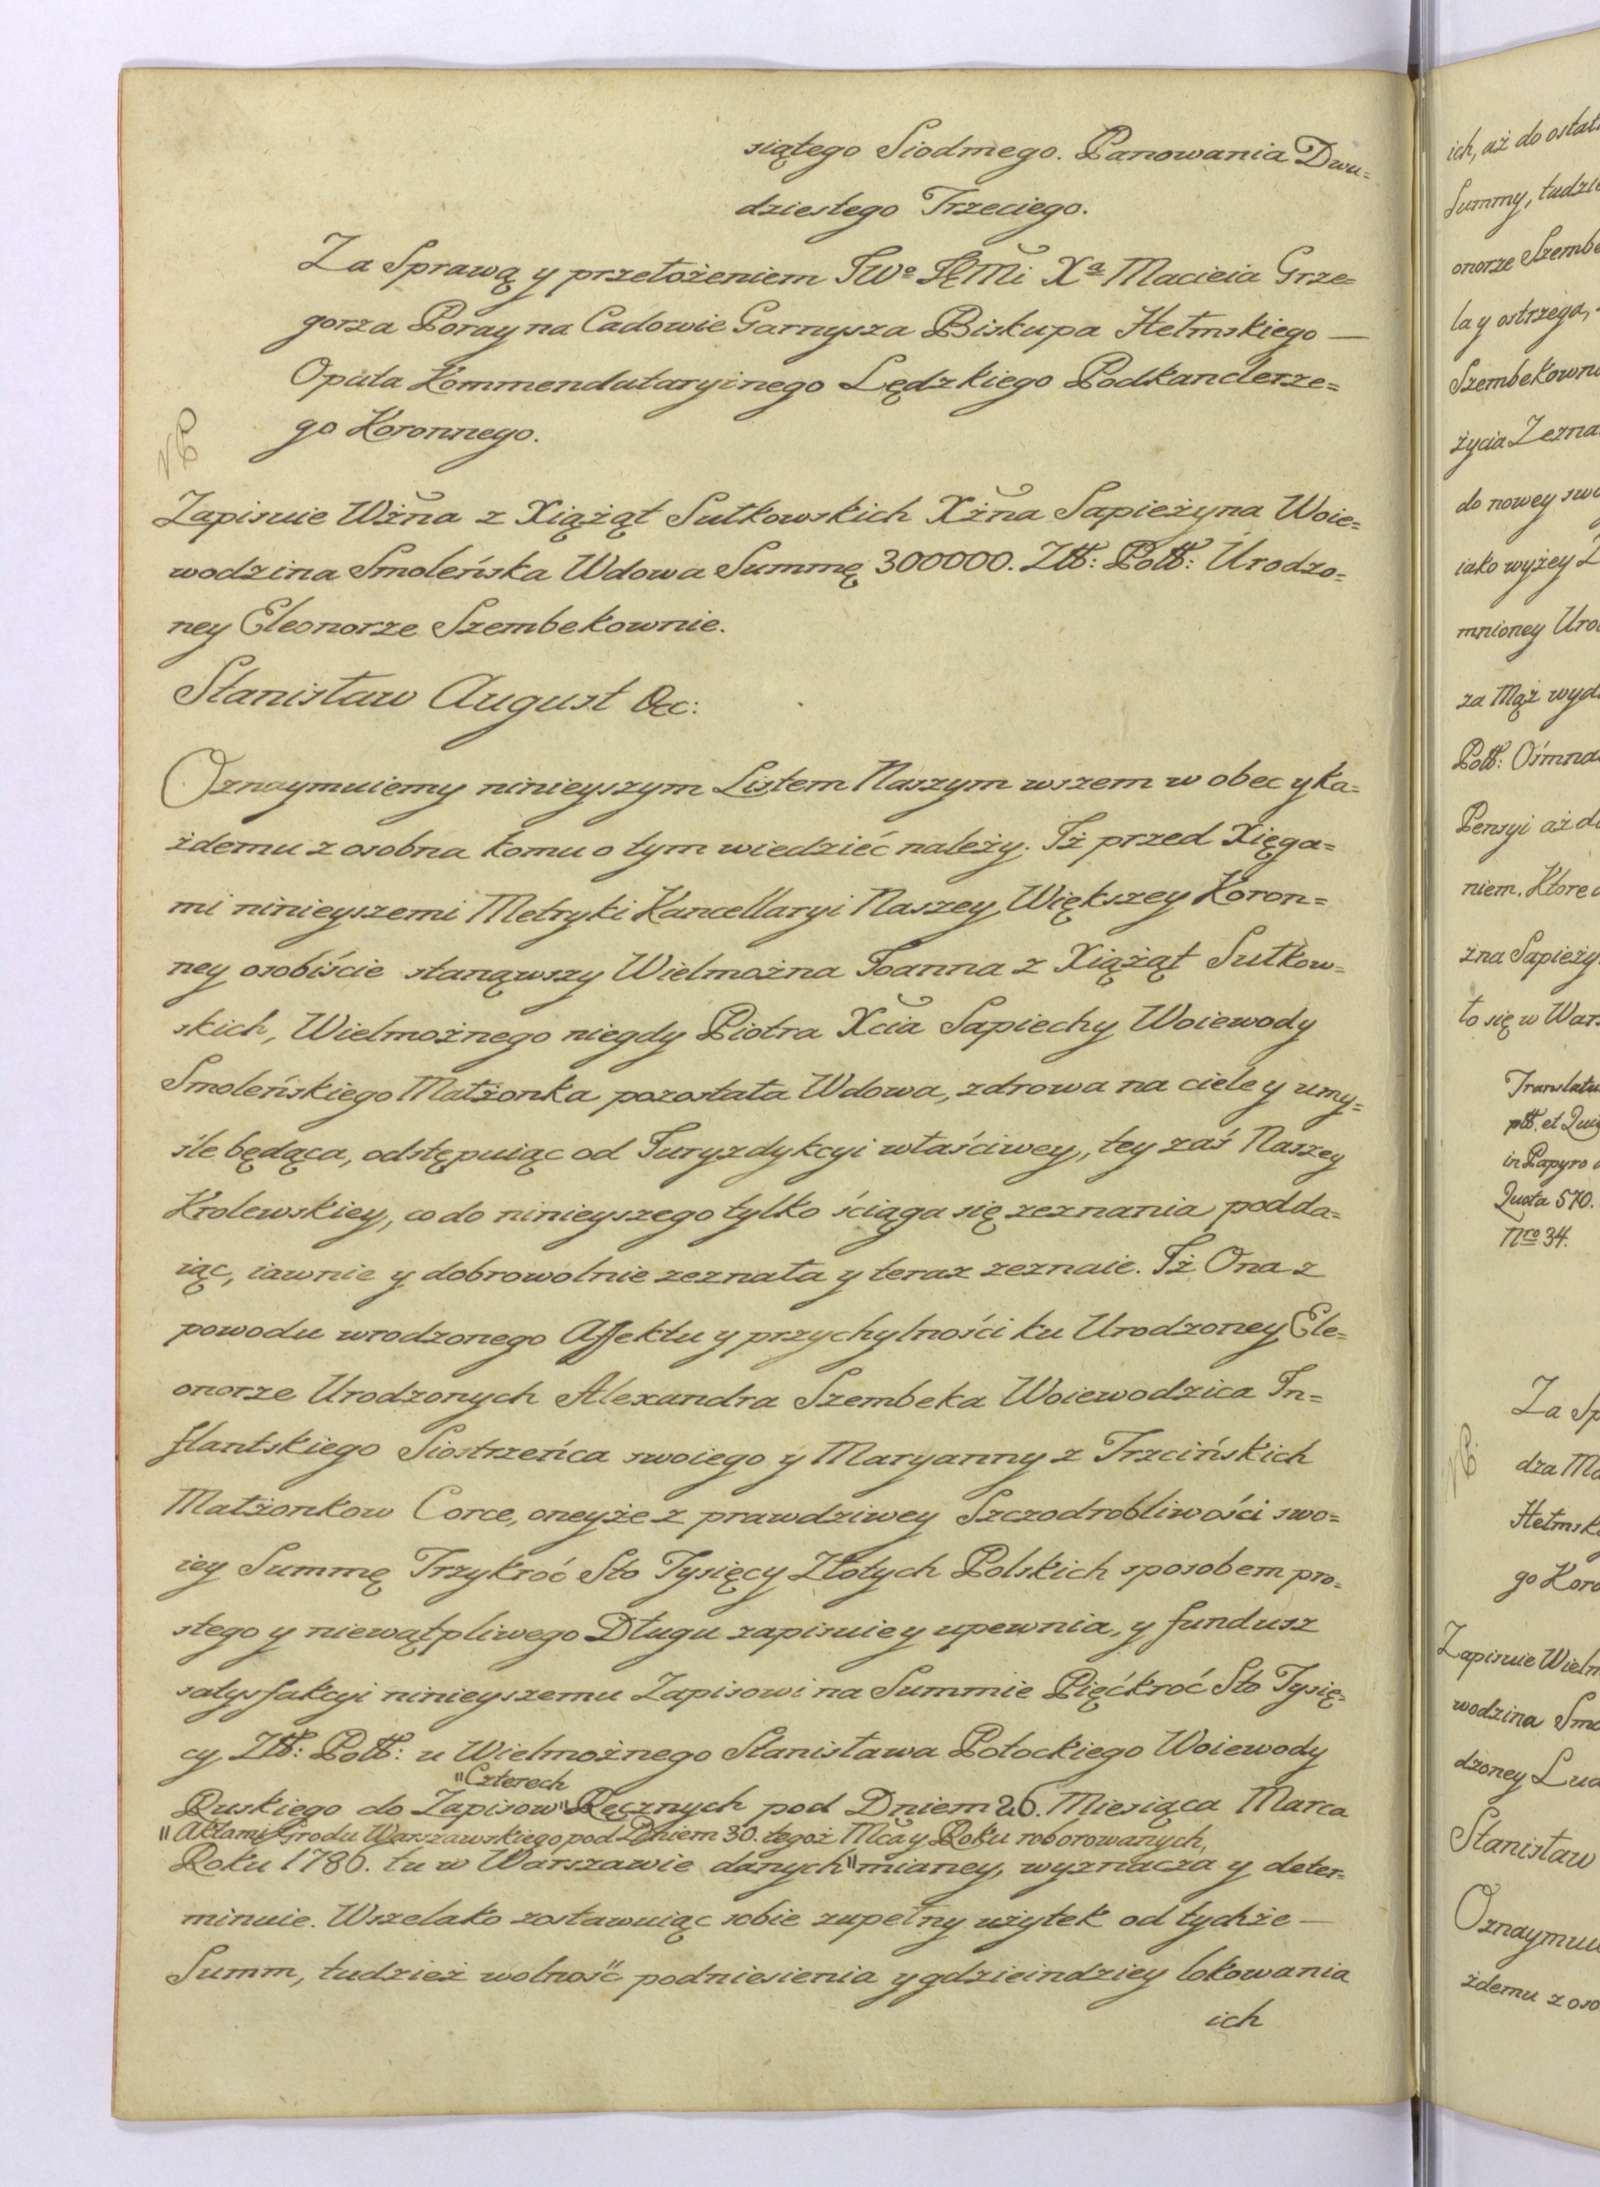 siątego Siodmego. Panowania Dwu=
dziestego Trzeciego.
Za Sprawą y przełożeniem Xa Macieia Grze=
gorza Poray na Cadowie Garnysza Biskupa Hełmskiego —
Opata Kommendataryinego Lędzkiego Podkanclerze=
go Koronnego.
Zapisuie Wżna z Xiążąt Sułkowskich Xżna Sapieżyna Woie=
wodzina Smoleńska Wdowa Summę 300000. Złł: Poll: Urodzo=
ney Eleonorze Szembekownie.
Stanisław August &c:
Oznaymuiemy ninieyszym Listem Naszym wszem w obec y ka=
żdemu z osobna komu o tym wiedzieć należy. Iż przed Xięga=
mi ninieyszemi Metryki Kancellaryi Naszey Większey Koron=
ney osobiście stanąwszy Wielmożna Joanna z Xiążąt Sułkow=
skich, Wielmożnego niegdy Piotra Xcia Sapiechy Woiewody
Smoleńskiego Małżonka pozostała Wdowa, zdrowa na ciele y umy=
śle będąca, odstępuiąc od Juryzdykcyi właściwey, tey zaś Naszey
Krolewskiey, co do ninieyszego tylko ściąga się zeznania podda=
iąc, iawnie y dobrowolnie zeznała y teraz zeznaie. Iż Ona z
powodu wrodzonego Affektu y przychylności ku Urodzoney Ele=
onorze Urodzonych Alexandra Szembeka Woiewodzica In=
flantskiego Siostrzeńca swoiego y Maryanny z Trzcińskich
Małżonkow Corce, oneyże z prawdziwey Szczodrobliwości swo=
iey Summę Trzykroć Sto Tysięcy Złotych Polskich sposobem pro=
stego y niewątpliwego Długu zapisuie y upewnia, y fundusz
satysfakcyi ninieyszemu Zapisowi na Summie Pięćkroć Sto Tysię=
cy Złł: Poll: u Wielmożnego Stanisława Potockiego Woiewody
"Czterech
Ruskiego do Zapisow" Ręcznych pod Dniem 26. Miesiąca Marca
"Aktami Grodu Warszawskiego pod Dniem 30. tegoż Mca y Roku roborowanych,
Roku 1786. tu w Warszawie danych" mianey, wyznacza y deter=
minuie. Wszelako zostawuiąc sobie zupełny użytek od tychże —
Summ, tudzież wolność podniesienia y gdzieindziey lokowania
ich
ich, aż do
Summy,
onorze
la y ostrzega,
życia
do nowey
iako wyżey
mnioney
za Mąż
Poll:
Pensyi aż
niem. Ktore
żna
to się w
et
in Papyro
Quota 570.
Nro 34.
Za
dza
go
Zapisuie
wodzina
dzoney
Stanisław
żdemu z